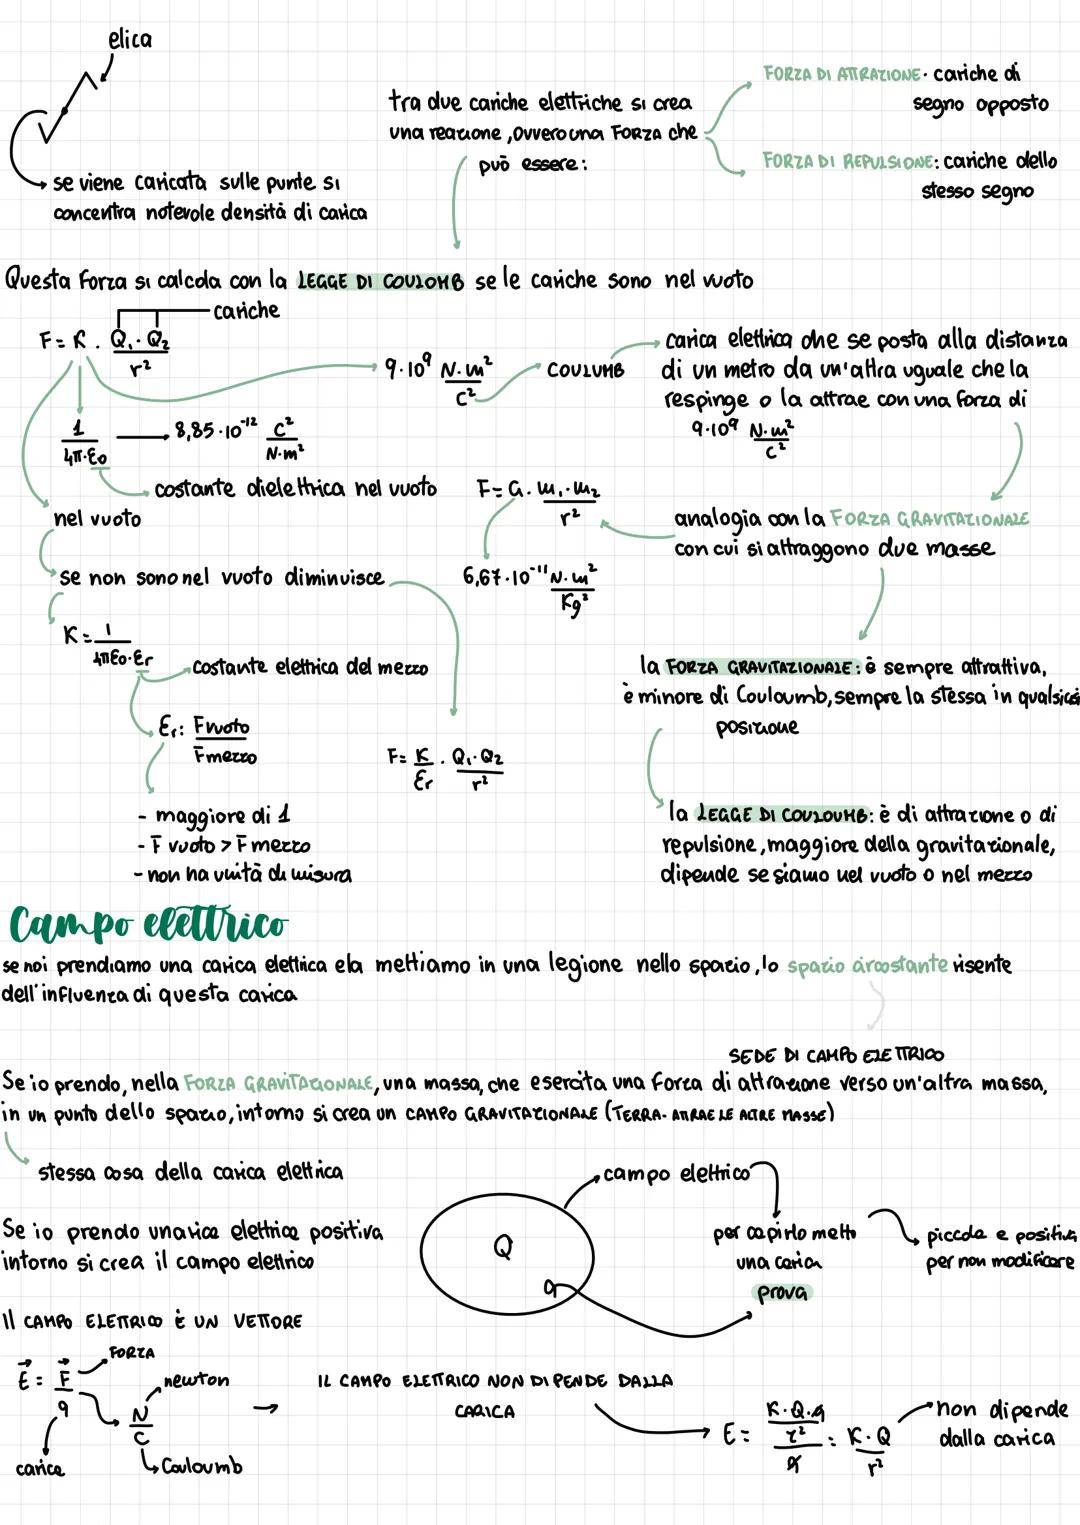 elica
se viene caricata sulle punte si
concentra notevole densità di carica
tra due cariche elettriche si crea
una reazione, ovvero una FORZA che
può essere:
FORZA DI ATTRAZIONE· cariche di
segno opposto
FORZA DI REPULSIONE: cariche dello
stesso segno
Questa Forza si calcola con la LEGGE DI COULOMB se le cariche sono nel vuoto
cariche
F= K · Q₁·Q₂ / r²
9·10⁹ N·m² / C²
COULUMB
carica elettrica che se posta alla distanza
di un metro da un'altra uguale che la
respinge o la attrae con una forza di
9·10⁹ N·m² / C²
1 / 4π·ε₀
8,85·10⁻¹² C² / N·m²
costante dielettrica nel vuoto
nel vuoto
se non sono nel vuoto diminuisce
F= G · m₁·m₂ / r²
6,67·10⁻¹¹ N·m² / Kg²
analogia con la FORZA GRAVITAZIONALE
con cui si attraggono due masse
K= 1 / 4πε₀·εr
costante elettrica del mezzo
εr: Fvuoto / Fmezzo
F= K / εr · Q₁·Q₂ / r²
- maggiore di 1
- F vuoto > F mezzo
- non ha unità di misura
la FORZA GRAVITAZIONALE: è sempre attrattiva,
è minore di Couloumb, sempre la stessa in qualsiasi
posizione
la LEGGE DI COULOUMB: è di attrazione o di
repulsione, maggiore della gravitazionale,
dipende se siamo nel vuoto o nel mezzo
Campo elettrico
se noi prendiamo una carica elettrica e la mettiamo in una legione nello spazio, lo spazio circostante risente
dell'influenza di questa carica
SEDE DI CAMPO ELETTRICO
Se io prendo, nella FORZA GRAVITAZIONALE, una massa, che esercita una Forza di attrazione verso un'altra massa,
in un punto dello spazio, intorno si crea un CAMPO GRAVITAZIONALE (TERRA- ATTRAE LE ALTRE MASSE)
stessa cosa della carica elettrica
Se io prendo una carica elettrica positiva
intorno si crea il campo elettrico
Q
q
campo elettrico
per capirlo metto
una carica
prova
piccola e positiva
per non modificare
Il CAMPO ELETTRICO È UN VETTORE
E⃗ = F⃗ / q
FORZA
carica
N / C
newton
Couloumb
IL CAMPO ELETTRICO NON DIPENDE DALLA
CARICA
E= K·Q·q / r² / q = K·Q / r²
non dipende
dalla carica